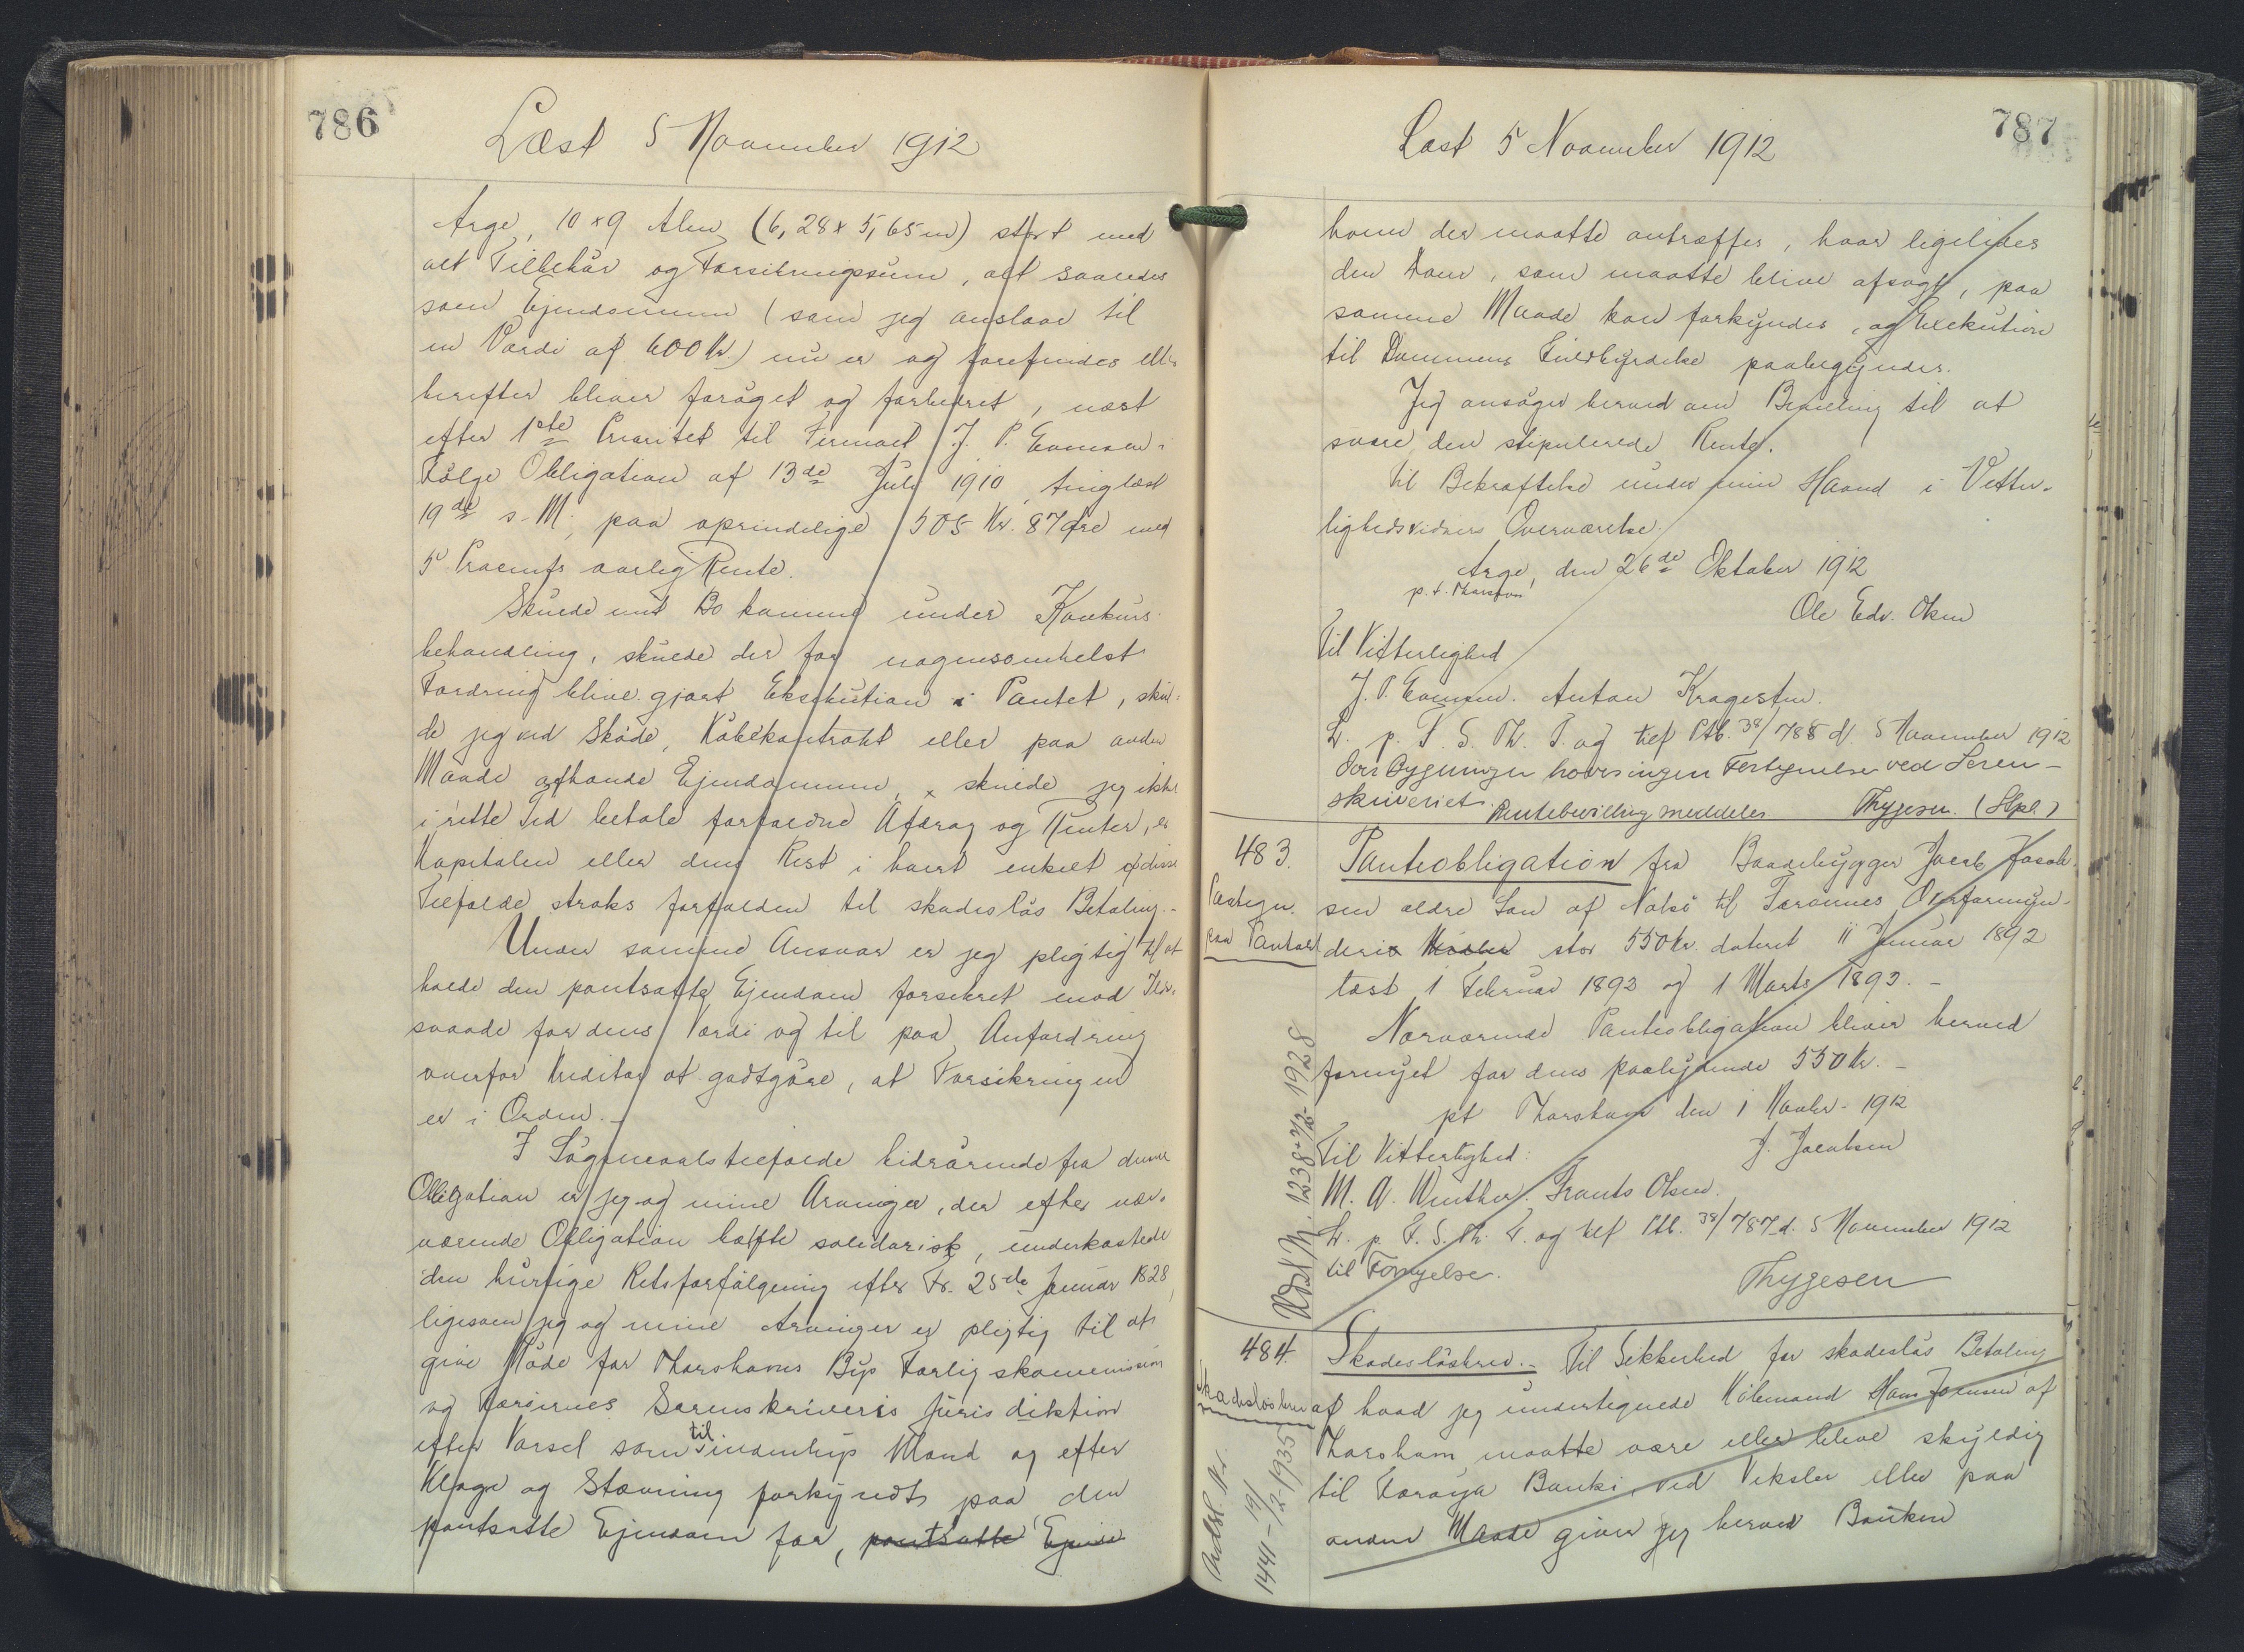 786
Læst 5 November 1912
Arge, 10 x 9 Alen (6,28 x 5,65 m) stort med
alt Tilbehör og Forsikringssum, alt saaledes
som Ejendommen (som jeg anslaar til
en Værdi af 600 Kr.) nu er og forefindes eller
herefter bliver foröget og forbedret, næst
efter 1ste Prioritet til Firmaet J. P. Evensen
Fölge Obligation af 13de Juli 1910, tinglæst
19de s. M., paa oprindelige 505 Kr. 87 Øre med
5 Procents aarlig Rente.
Skulde mit Bo komme under Konkurs-
behandling, skulde der for nogensomhelst
Fordring blive gjort Eksekution i Pantet, skul-
de jeg ved Sköde, Köbekontrakt eller paa anden
Maade afhænde Ejendommen, x skulde jeg ikke
i rette Tid betale forfaldne Afdrag og Renter, er
Kapitalen eller dens Rest i hvert enkelt af disse
Tilfælde straks forfalden til skadeslös Betaling.-
Under samme Ansvar er jeg pligtig til at
holde den pantsatte Ejendom forsikret mod Ilds-
vaade for dens Værdi og til paa Anfordring
overfor Kreditor at godtgöre, at Forsikringen
er i Orden.-
I Sögsmaalstilfælde hidrörende fra denne
Obligation er jeg og mine Arvinger, der efter nær-
værende Obligation hæfte solidarisk, underkastede
den hurtige Retsforfölgning efter Fr. 25de Januar 1828,
ligesom jeg og mine Arvinger er pligtig til at
give Möde for Thorshavns Bys Forligskommission
og Færöernes Sorenskriveris Jurisdiktion
efter Varsel som til indenbys Mand og efter
Klage og Stævning forkyndt paa den
pantsatte Ejendom for, pantsatte Ejen
787
Læst 5 November 1912
hvem der maatte antræffes, hvor ligeledes
den Dom, som maatte blive afsagt, paa
samme Maade kan forkyndes, og Exekution
til Dommens Fuldbyrdelse paabegyndes.
Jeg ansöger herved om Bevilling til at
svare den stipulerede Rente.
Til Bekræftelse under min Haand i Vitter-
lighedsvidners Overværelse.
Arge, den 26de Oktober 1912
p. t. Thorshavn
Ole Edv. Olsen
Til Vitterlighed
J. P. Evensen. Anton Kragesteen.
L. p. F. S. Th. T. og ktf Ptb. 38/788 d. 5 November 1912
Over Bygningen haves ingen Festegnelse ved Soren-
skriveriet. Rentebevilling meddeles Thygesen. (Stpl.)
483.
Pategn.
paa Pantobl
Panteobligation fra Baadebygger Jacob Jacob-
sen ældre Sön af Nolsö til Færöernes Overformyn-
deri stor 550 Kr. dateret 11 Januar 1892
læst 1 Februar 1892 og 1 Marts 1893.-
Nærværende Panteobligation bliver herved
fornyet for dens paalydende 550 Kr.-
pt Thorshavn den 1 Novbr. 1912
Til Vitterlighed: J. Jacobsen
M. A. Winther. Frants Olsen.
L. p. F. S. Th. T. og ktf Ptb. 38/787 d. 5 November 1912
til Fornyelse.
Thygesen
Udsl. N. 1238-7/2-1928
484.
Skadeslösbrev
Skadeslösbrev.- Til Sikkerhed for skadeslös Betaling
af hvad jeg undertegnede Köbmand Hans Joensen af
Thorshavn maatte være eller blive skyldig
til Föroya Banki, ved Veksler eller paa
anden Maade giver jeg herved Banken
Udsl. Nr.
1441-19/12-1935